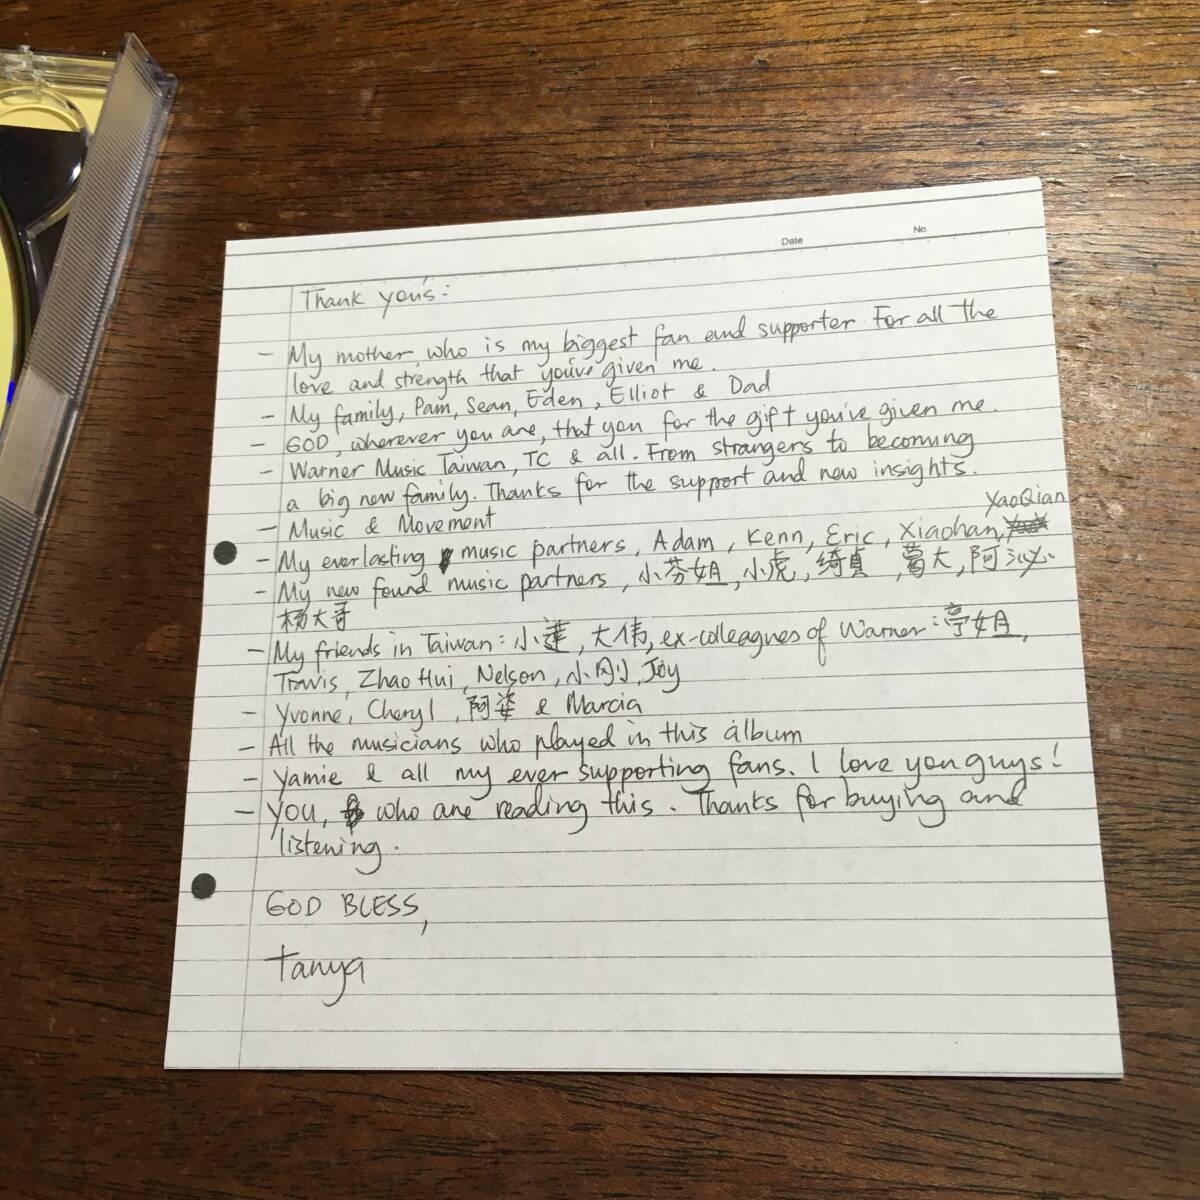 Date No.
Thank you's:
- My mother who is my biggest fan and supporter. For all the
love and strength that you've given me.
- My family, Pam, Sean, Eden, Elliot & Dad
- GOD, wherever you are, that you for the gift you've given me.
- Warner Music Taiwan, TC & all. From strangers to becoming
a big new family. Thanks for the support and new insights.
- Music & Movement
- My everlasting music partners, Adam, Kenn, Eric, Xiaohan, YaoQian
- My new found music partners, 小芬姐, 小虎, 綺貞, 葛大, 阿沁,
杨大哥
- My friends in Taiwan: 小蓮, 大偉, ex-colleagues of Warner: 亭姐,
Travis, Zhao Hui, Nelson, 小刚, Joy
- Yvonne, Cheryl, 阿姿 & Marcia
- All the musicians who played in this album
- Yamie & all my ever supporting fans. I love you guys!
- YOU, who are reading this. Thanks for buying and
listening.
GOD BLESS,
Tanya